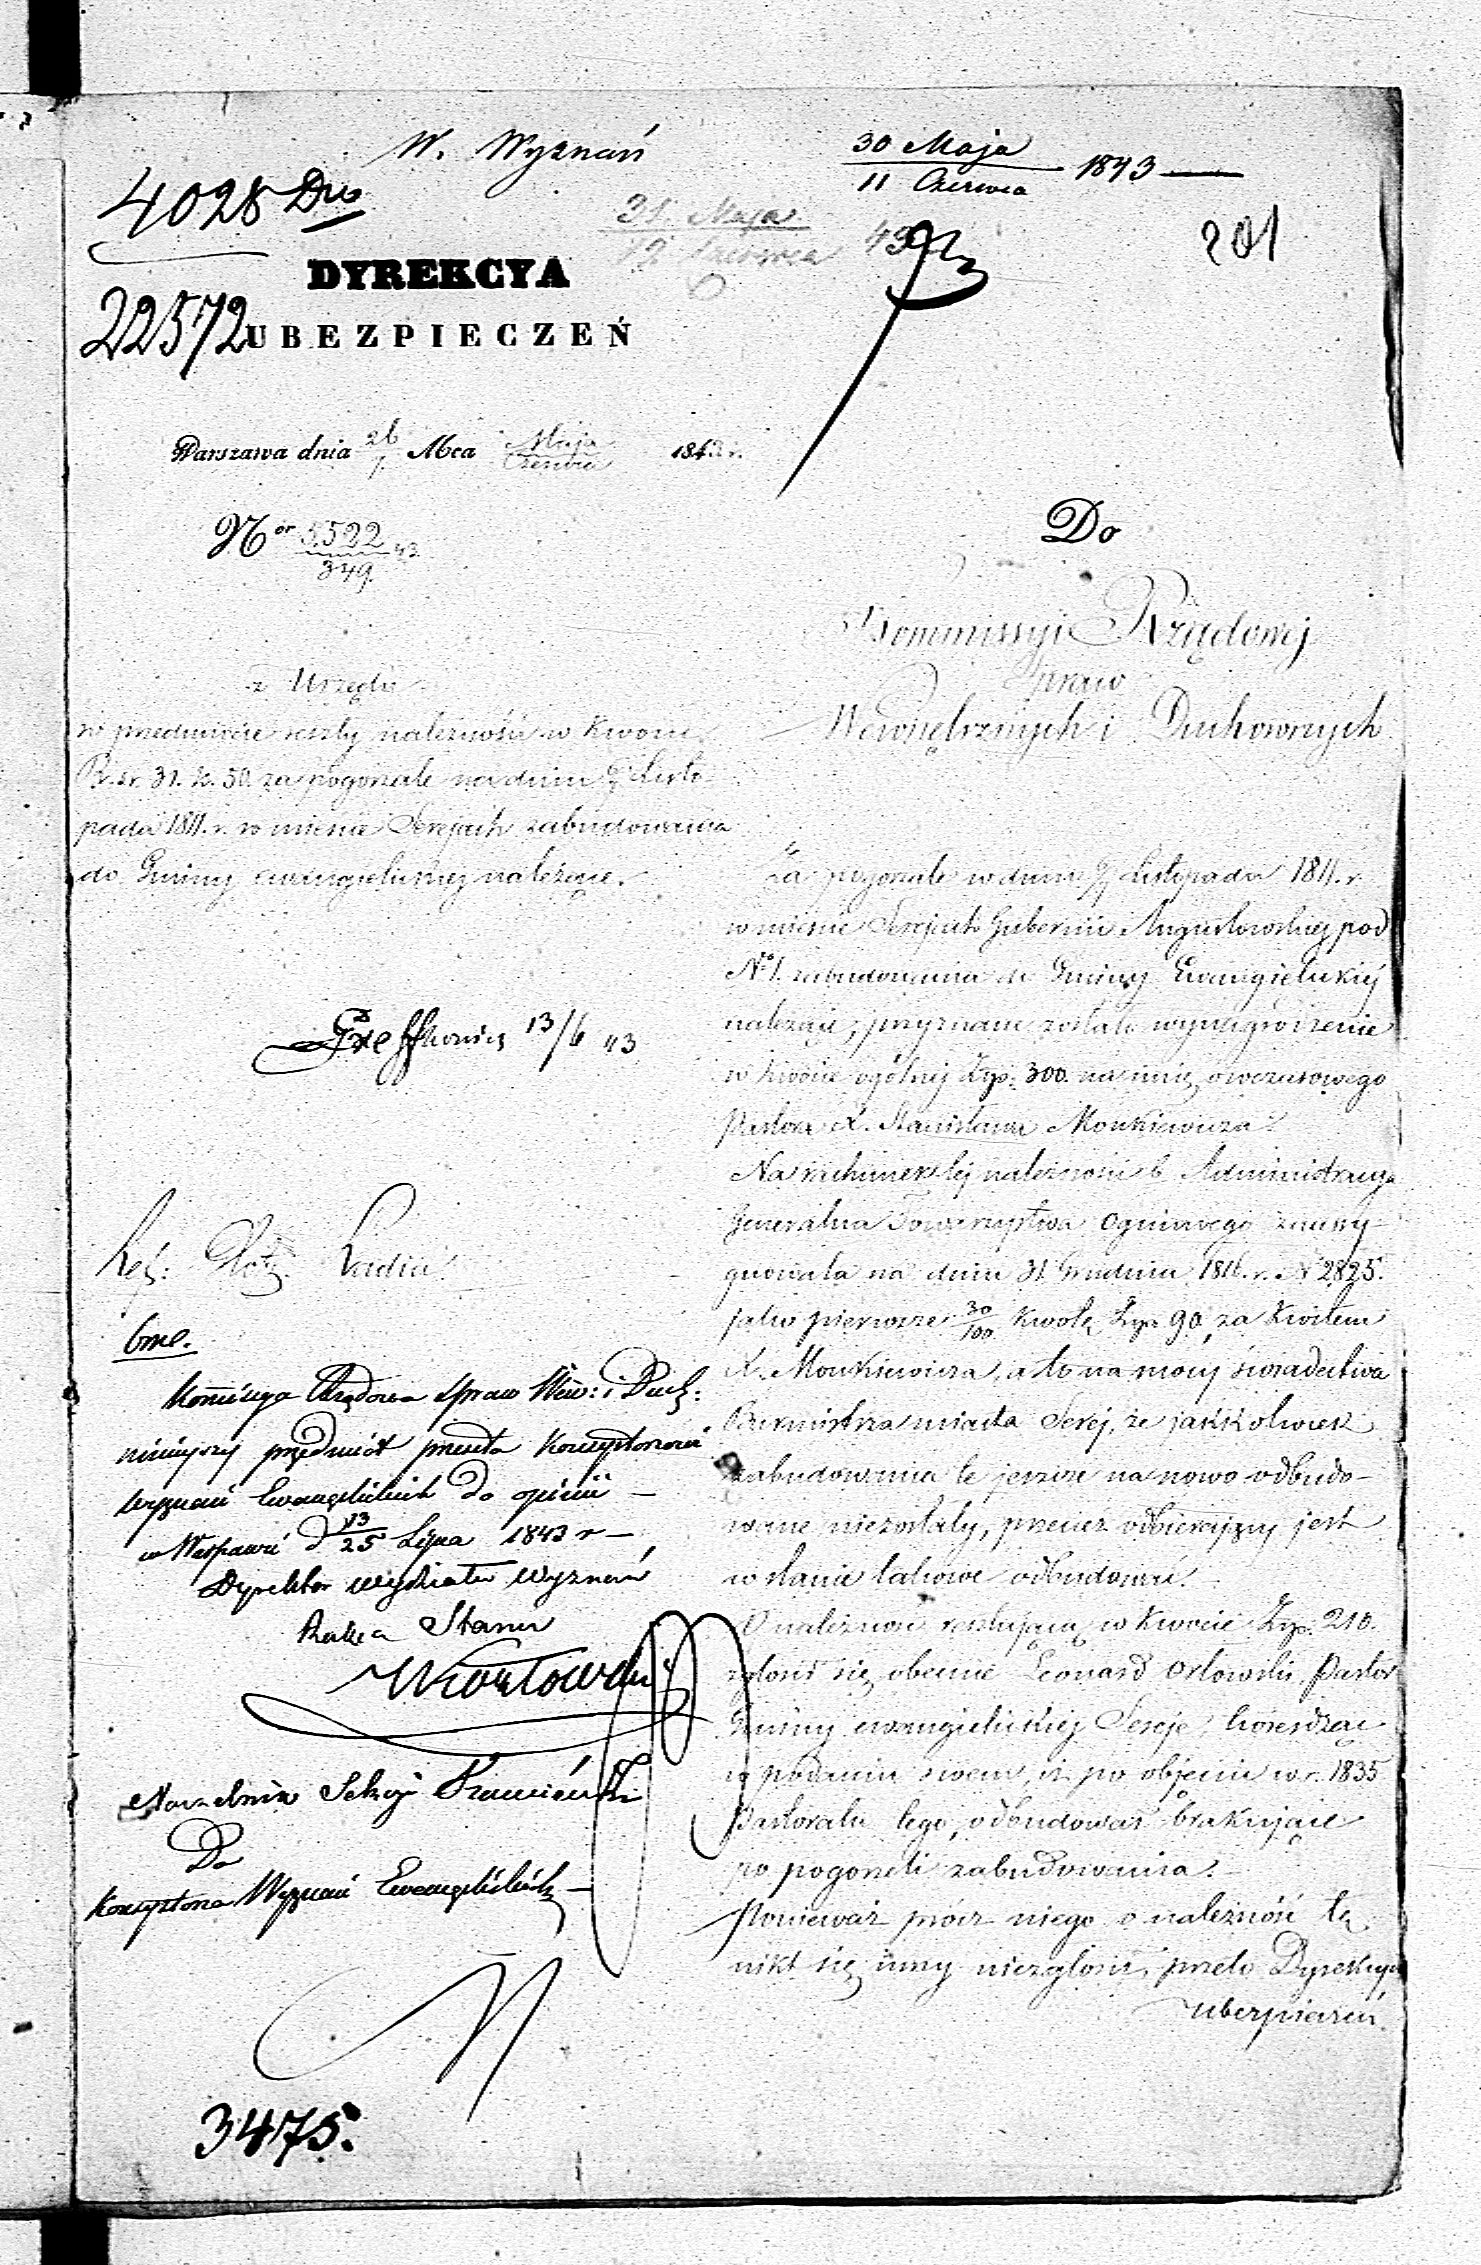 W. Wyznań
30 Maja
11 Czerwca 1843
4028 Dus
31. Maja
12 Czerwca 43
201
DYREKCYA
22572
UBEZPIECZEŃ
Warszawa dnia 26/7 Mca Maja/Czerwca 1843 r.
Nor 5522/349 43
Do
Kommissyi Rządowej
Spraw
Wewnętrznych i Duchownych
z Urzędu
w przedmiocie reszty należności w kwocie
R. sr. 31. k. 50. za pogorzałe na dniu Listo
pada 1811. r. w mieście Serejach zabudowania
do Gminy ewangielickiej należące.
Za pogorzałe w dniu Listopada 1811. r.
w mieście Serejach Gubernii Augustowskiej pod
No 1. zabudowania do Gminy Ewangielickiej
należące, przyznane zostało wynagrodzenie
w kwocie ogólnej Złp. 300. na imię owczasowego
Pastora X. Stanisława Monkiewicza.
Na rachunek tej należności b. Administracya
Jeneralna Towarzystwa Ogniowego zaassy-
gnowała na dniu 31. Grudnia 1811. r. N 2825.
jako pierwsze 30/100 kwotę Złp. 90, za kwitem
X. Monkiewicza, a to na mocy świadectwa
Burmistrza miasta Serej, że jakkolwiek
zabudowania te jeszcze na nowo odbudo-
wane niezostały, przecież odbierający jest
w stanie takowe odbudować.
O należność resztującą w kwocie Złp. 210.
zgłosił się obecnie Leonard Orłowski Pastor
Gminy ewangielickiej Sereje, twierdząc
w podaniu swem, iż po objęciu w r. 1835
Pastoratu tego, odbudował brakujące
po pogorzeli zabudowania.
Ponieważ prócz niego o należność tę
nikt się inny niezgłosił, przeto Dyrekcya
Ubezpieczeń
13/6 43
Kommissya Rządowa Spraw Wew: i Duch:
niniejszy przedmiot przesyła Konsystorzowi
wyznań Ewangelickich do opinii —
w Warszawie d 13/25 Lipca 1843 r —
Dyrektor Wydziału Wyznań
Radca Stanu
Naczelnik Sekcyi
Do
Konsystorza Wyznań Ewangelickich —
3475.